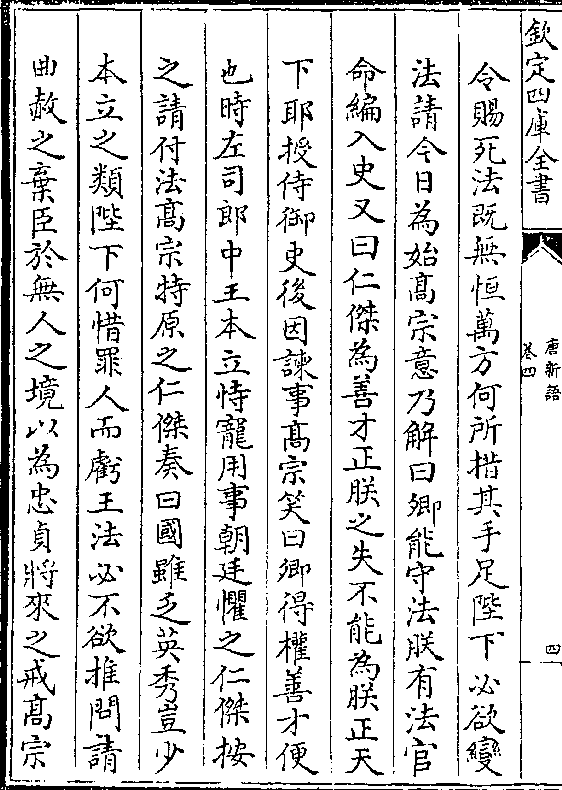 欽定四庫全書
唐新語
卷四
四
令賜死法既無恒萬方何所措其手足陛下必欲變
法請今日為始髙宗意乃解曰卿能守法朕有法官
命編入史又曰仁傑為善才正朕之失不能為朕正天
下耶授侍御史後因諫事髙宗笑曰卿得權善才便
也時左司郎中王本立恃寵用事朝廷懼之仁傑按
之請付法髙宗特原之仁傑奏曰國雖乏英秀豈少
本立之類陛下何惜罪人而虧王法必不欲推問請
曲赦之棄臣於無人之境以為忠貞將來之戒髙宗